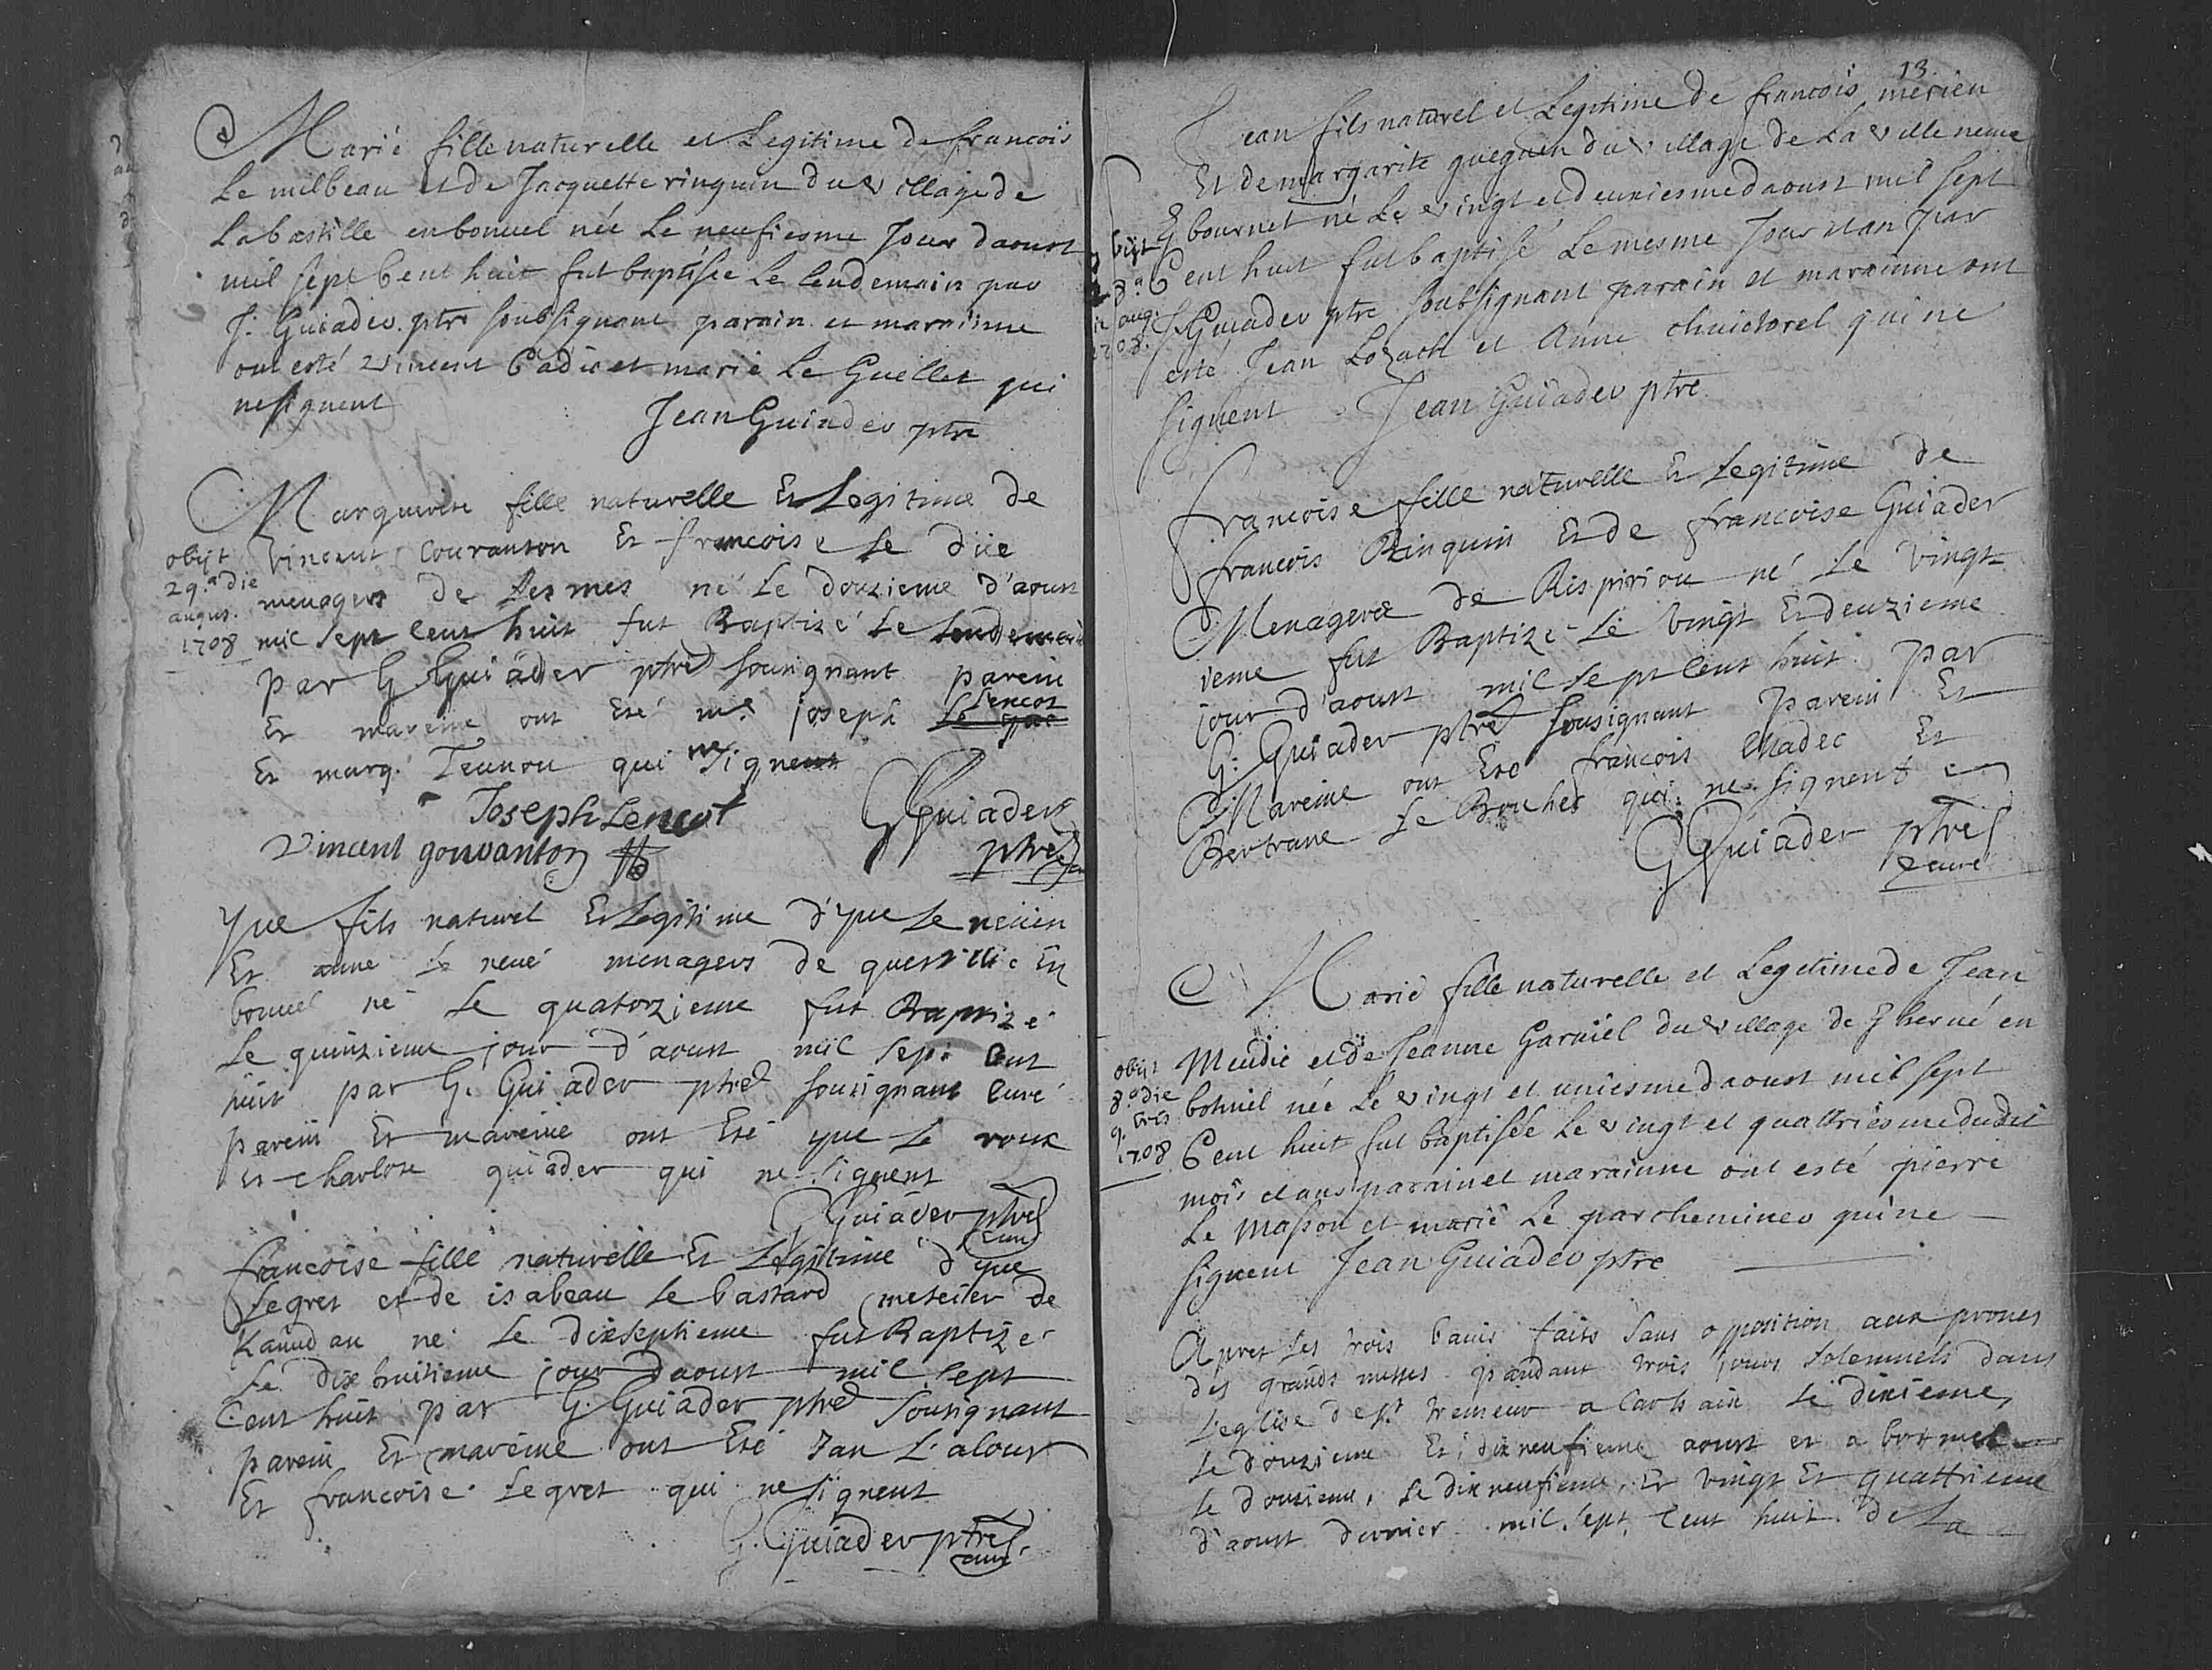 Marie fille naturelle et Legitime de francois
Le milbeau et de Jacquette rinquin du village de
Labastille en bonuel née Le neufiesme Jour daoust
mil sept Cent huit fut baptisée Le lendemain par
J. Guiader ptre soubsignant parain et marainne
ont esté Vincent Cadic et marie Le Guellec qui
ne signent
Jean Guiader ptre
Marguerite fille naturelle Et Legitime de
vincent Couranton Et francoise Le Dûe
menagers de Lesmes né Le douzieme d'aoust
mil sept Cent huit fut Baptizé Le lendemain
par G Guiader ptre sousignant parein
Lencot
Et mareine ont Eté mre joseph
Et marg. Teunou qui ne signent
obijt
29.a die
augus.
1708
Joseph Lencot
G Guiader
ptre
Vincent gouvanton
yue fils naturel Et Legitime d'yue Le neuën
Et anne Le neué menagers de quervillic En
bonuel né Le quatorzieme fut Baptizé
Le quinzieme jour d'aoust mil sept Cent
huit par G. Guiader ptre sousignant Curé
parein Et mareine ont Eté yue Le roux
Et Charlote guiader qui ne signent
G Guiader ptre
Curé
francoise fille naturelle Et Legitime d'yue
Legret et de isabeau Le bastard meteïer de
Kaudau né Le dixseptieme fut Baptizé
Le dixhuitieme jour daoust mil sept
Cent huit par G. Guiader ptre sousignant
parein Et mareine ont Eté Jan L'alour
Et francoise Legret qui ne signent
G. Guiader ptre
curé
13.
Jean fils naturel et Legitime de francois merien
Et de margarite gueguen du village de La villeneuve
bournet né Le vingt et deuxiesme daoust mil sept
Cent huit fut baptisé Le mesme Jour et an par
J Guiader ptre soubsignant parain et marainne ont
esté Jean Lozach et Anne chuictorel qui ne
signent Jean Guiader ptre
obijt
8.a
aug.
1708.
Francoise fille naturelle Et Legitime de
francois Rinquin Et de francoise Guiader
Menagers de Rispiriou né Le vingt
ieme fut Baptizé Le vingt Et deuzieme
jour d'aoust mil sept Cent huit par
G. Guiader ptre sousignant parein Et
Mareine ont Eté francois Cadec Et
Bertrane Le Boulher qui ne signent
G Guiader ptre
curé
Marie fille naturelle et Legitime de Jean
Meudic et de Jeanne Garniel du village de Kherué en
botuiel née Le vingt et uniesme daoust mil sept
Cent huit fut baptisée Le vingt et quattriesme dudit
mois et ans parain et marainne ont esté pierre
Le Masson et marie Le parcheminer qui ne
signent Jean Guiader ptre
obijt
8.a die
9.bris
1708
Apres Les trois banis faits sans opposition aux prones
des grands messes pandant trois jours solemnels dans
l'eglise de st tremeur a Carhaix Le dixieme,
Le douzieme Et dixneufieme aoust et a botmel
Le douzieme, Le dixneufieme, Et vingt Et quattrieme
d'aoust dernier mil sept Cent huit de La